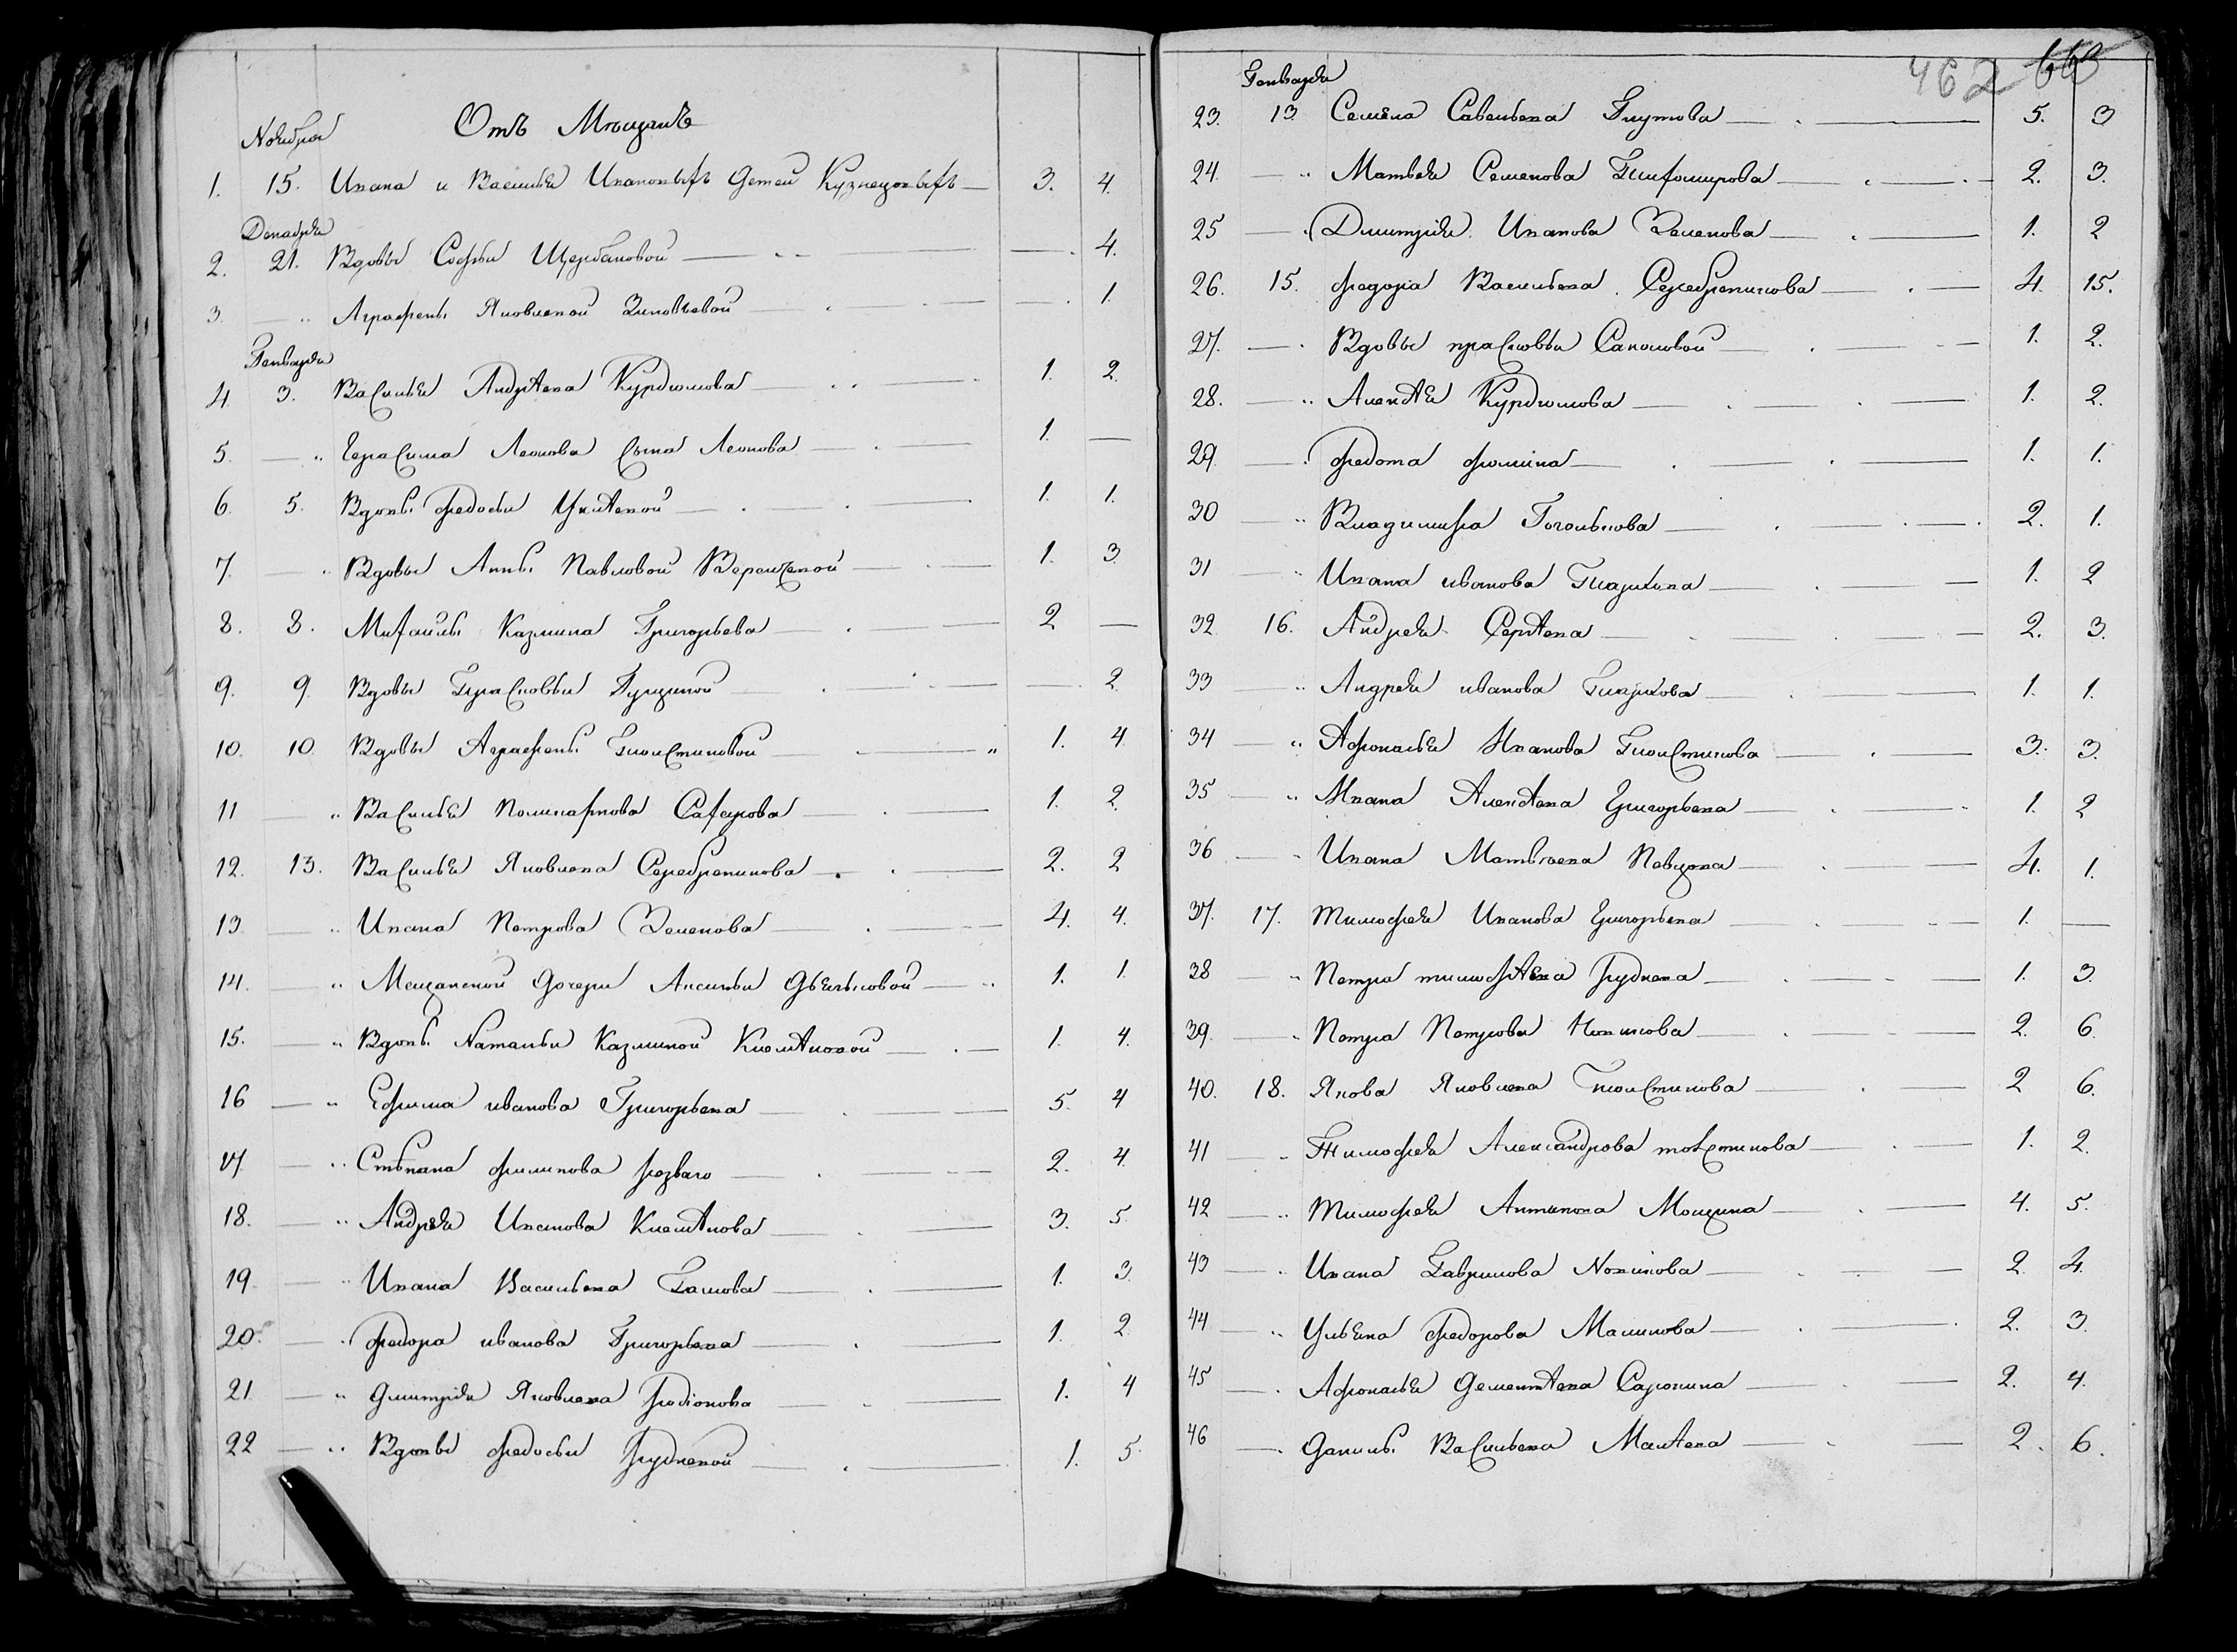 Ноября Отъ Мѣщанъ
1. 15. Ивана и Василья Ивановыхъ Детей Кузнецовыхъ — 3. 4.
Декабря
2. 21. Вдовы Софьи Щербаковой — 4.
3. — " Аграфены Яковлевой Зиновьевой — 1.
Генваря
4. 3. Василья Андрѣева Курдюмова — 1. 2.
5. — " Герасима Леонова Сына Леонова — 1. —
6. 5. Вдовы Федосьи — 1. 1.
7. — " Вдовы Анны Павловой — 1. 3.
8. 8. Михайлы Казмина Григорьева — 2 —
9. 9. Вдовы Прасковьи — 2.
10. 10. Вдовы Аграфены Толстиковой — " 1. 4.
11 — " Василья Поликарпова Сахарова — 1. 2.
12. 13. Василья Яковлева Серебреникова — 2. 2
13. — " Ивана Петрова Зеленова — 4. 4.
14. — " Мещанской Дочери Аксиньи — 1. 1.
15. — " Вдовы Натальи Казминой — 1. 4.
16 — " Ефима иванова Григорьева — 5. 4
17 — " Стѣпана филипова резваго — 2. 4.
18. — " Андрея Иванова — 3. 5.
19. — " Ивана Васильева — 1. 3.
20. — " федора иванова Григорьева — 1. 2.
21 — " Дмитрія Яковлева родіонова — 1. 4
22 — " Вдовы федосьи рудневой — 1. 5.
462 663
Генваря
23. 13. Семена Савельева — 5. 3
24. — " Матвея Семенова — 2. 3.
25 — " Дмитрія Иванова Зеленова — 1. 2
26. 15. федора Васильева Серебреникова — 4. 15.
27. — " Вдовы прасковьи Саколовой — 1. 2.
28. — " Алексѣя Курдюмова — 1. 2.
29. — " федота фомина — 1. 1.
30 — " Владимира — 2. 1.
31 — " Ивана иванова — 1. 2
32 16. Андрея Сергѣева — 2. 3.
33 — " Андрея иванова — 1. 1.
34 — " Афонасья Иванова Толстикова — 3. 3.
35 — " Ивана Алексѣева Григорьева — 1. 2
36 — " Ивана Матвѣева Певцова — 4. 1.
37. 17. Тимофея Иванова Григорьева — 1. —
38 — " Петра тимофѣева руднева — 1. 3.
39. — " Петра Петрова Новикова — 2. 6.
40. 18. Якова Яковлева Толстикова — 2 6.
41 — " Тимофея Александрова толстикова — 1. 2.
42 — " Тимофея Антипова Мощина — 4. 5.
43 — " Ивана Гаврилова Новикова — 2. 4.
44 — " Ульяна федорова Маликова — 2. 3.
45 — " Афонасья Дементѣева Саронина — 2. 4.
46 — " Данилы Васильева — 2. 6.